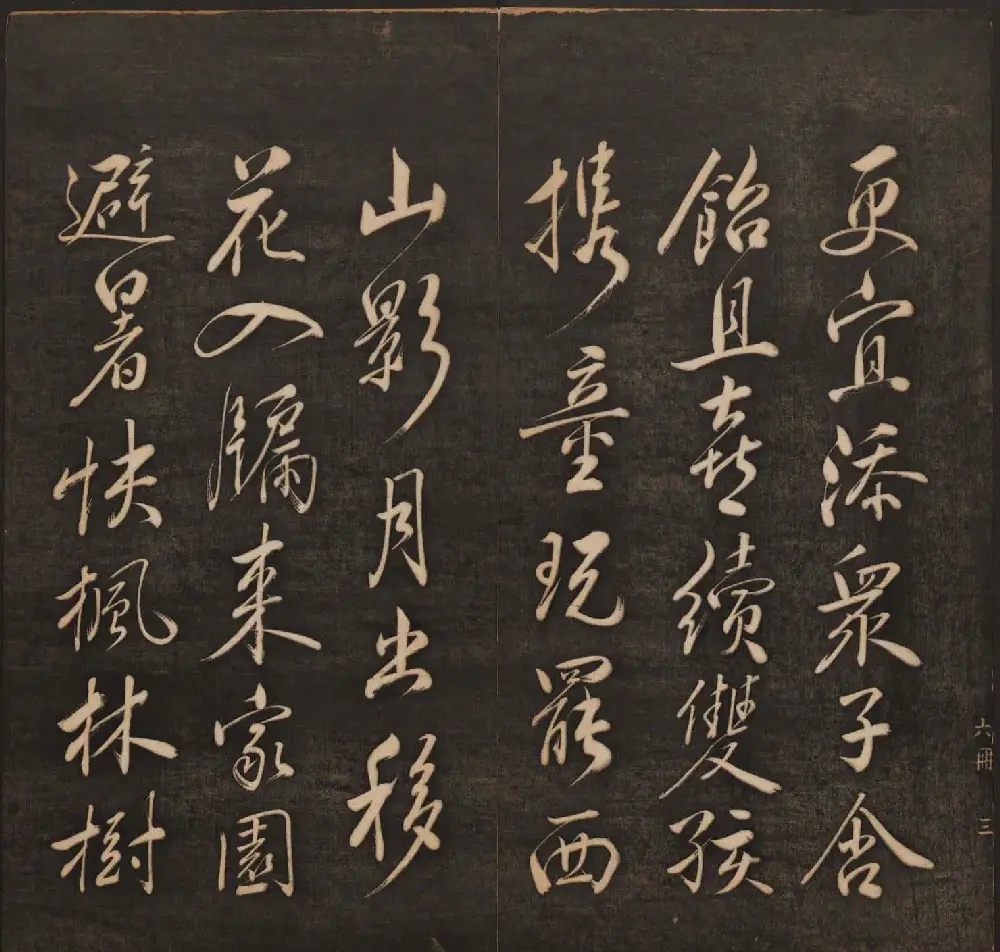 更宜添衆子含
飴且喜續雙孩
携童玩罷西
山影月出移
花入牖來家園
避暑快楓林樹
六冊 三